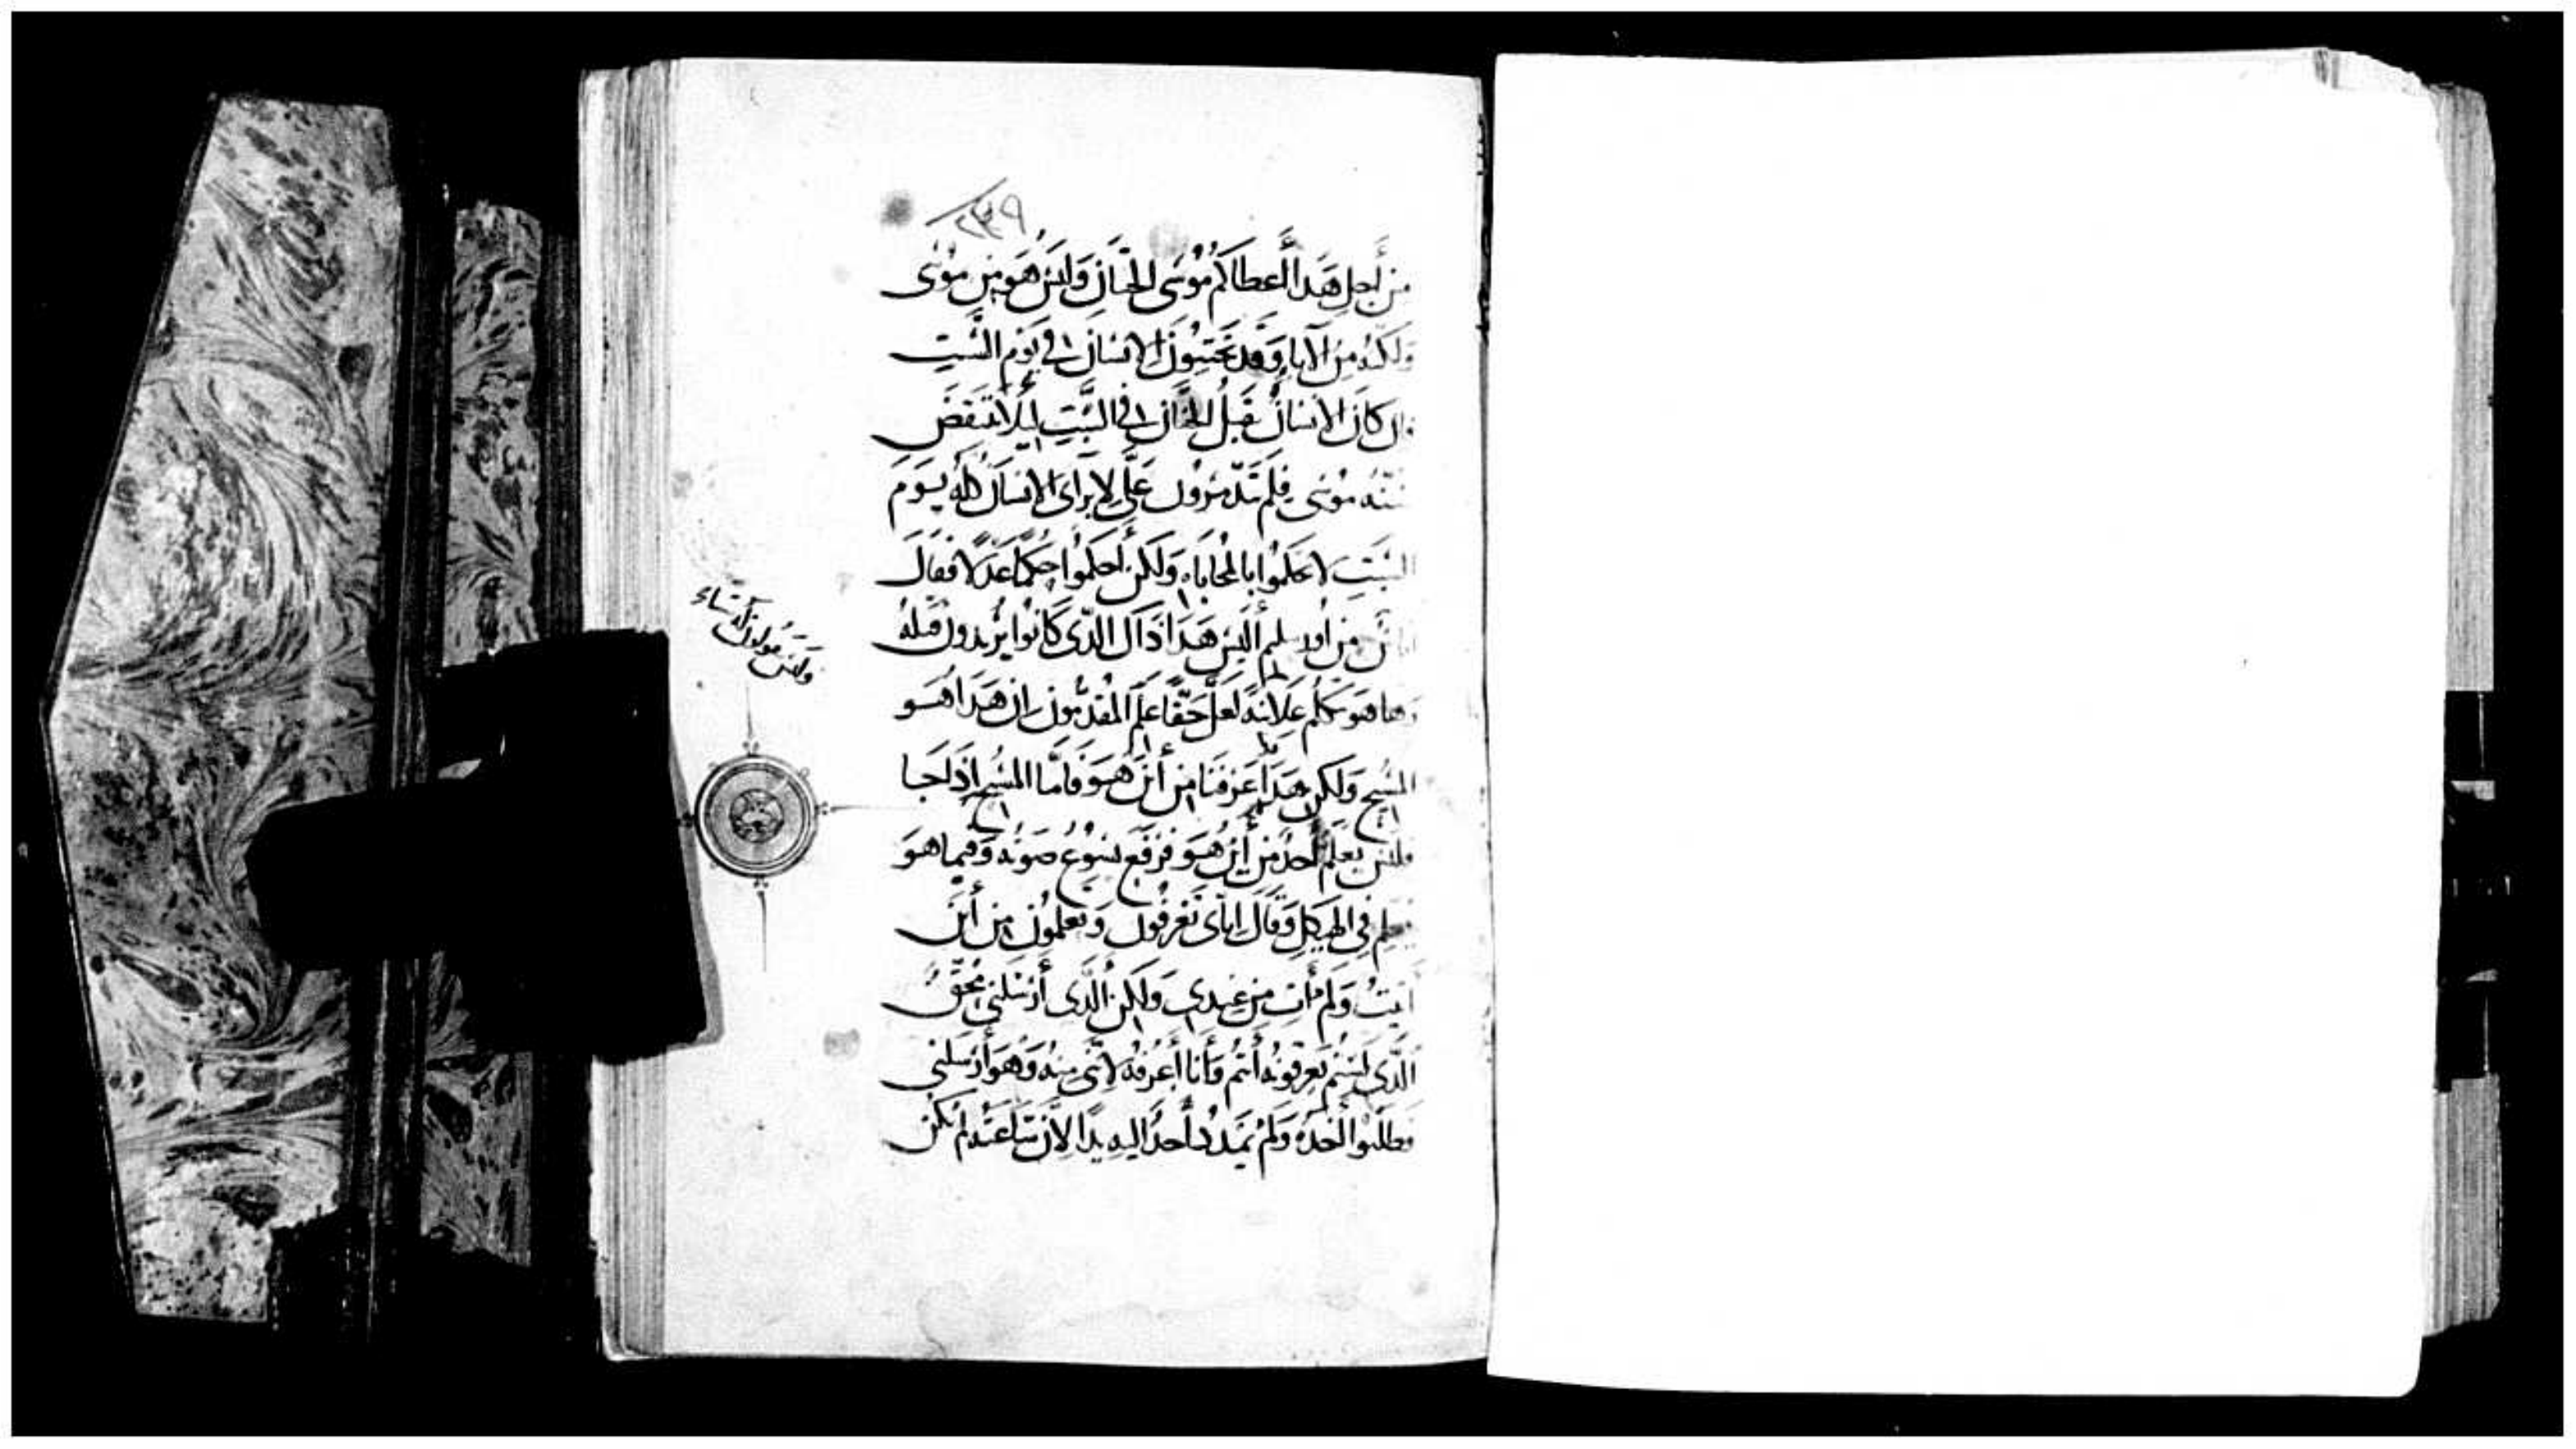 ٢٣٩
من اجل هذا اعطاكم موسى الختان وليس هو من موسى
ولكنه من الآباء وقد تختنون الانسان في يوم السبت
فان كان الانسان يقبل الختان في السبت ليلا تنقض
سنة موسى فلم تذمرون علي لابراى الانسان كله يوم
السبت لا تحكموا بالمحاباه ولكن احكموا حكما عدلا فقال
اناس من اورسلم أليس هذا ذاك الذي كانوا يريدون قتله
وها هو يتكلم علانية لعل حقا علم المقدمون ان هذا هو
المسيح ولكن هذا عرفنا من أين هو فاما المسيح اذا جا
فليس يعلم أحد من أين هو فرفع يسوع صوته وفيما هو
يعلم في الهيكل وقال اياي تعرفون وتعلمون من أين
اتيت ولم آت من عندي ولكن الذي أرسلني محق
الذي لستم تعرفونه أنتم وأنا أعرفه لانني منه وهو أرسلني
فطلبوا اخذه ولم يمدد أحد اليه يدا لان ساعته لم تكن
وليس يقولون له شاء